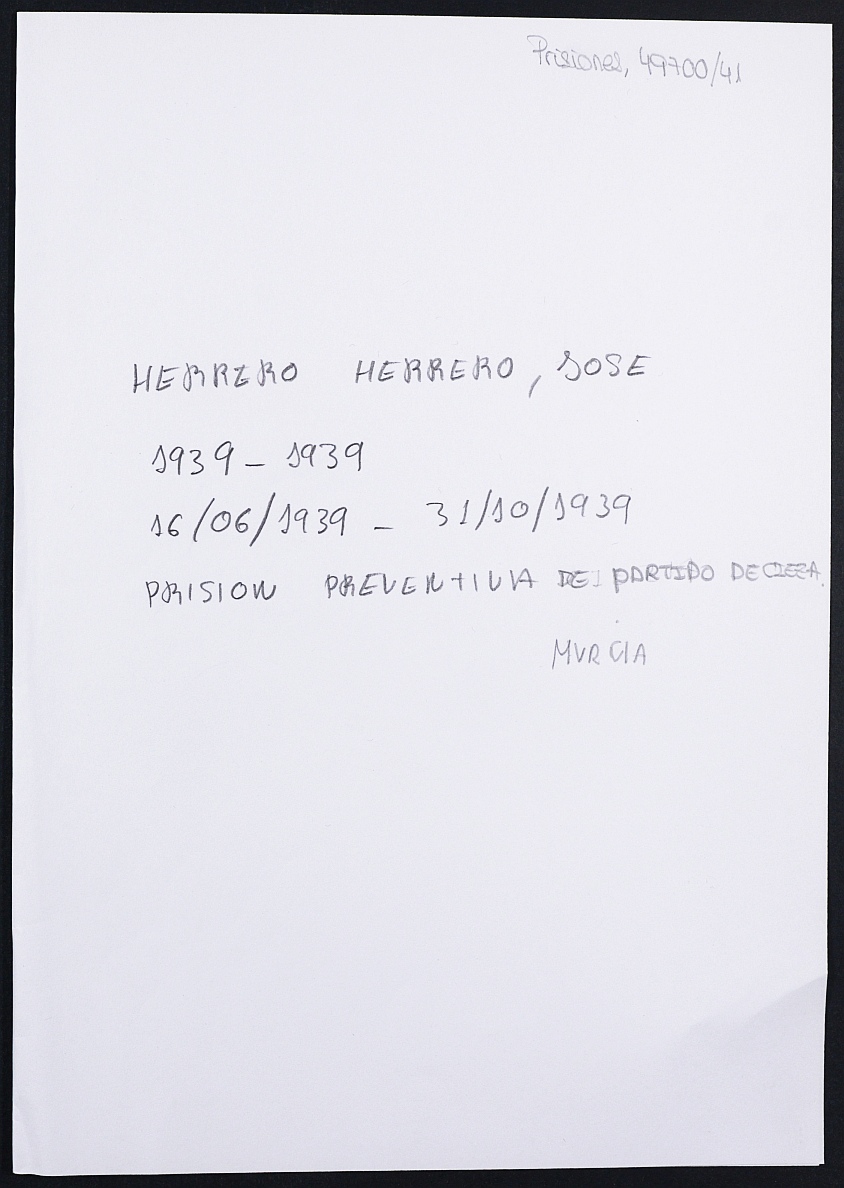 Prisiones, 49700/41
HERRERO HERRERO, JOSE
1939 - 1939
16/06/1939 - 31/10/1939
PRISION PREVENTIVA DEL PARTIDO DE CIEZA.
MURCIA